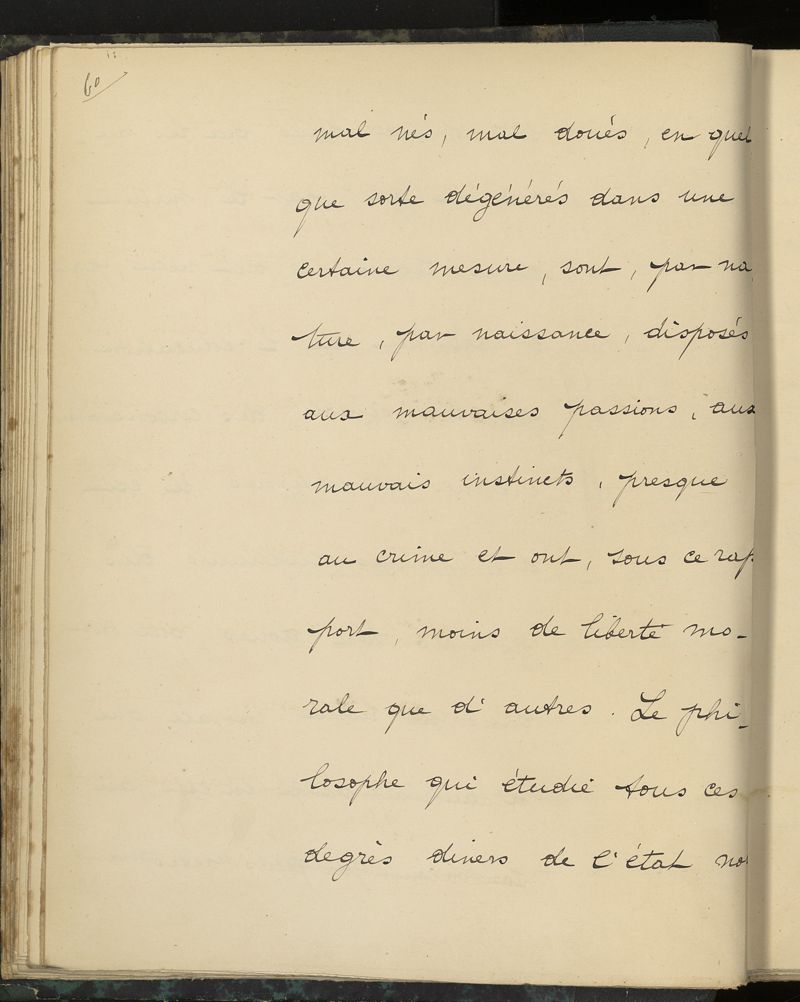 60
mal nés, mal doués, en quel
que sorte dégénérés dans une
certaine mesure, sont, par na
ture, par naissance, disposés
aux mauvaises passions, aux
mauvais instincts, presque
au crime et ont, sous ce rap
port, moins de liberté mo-
rale que d'autres. Le phi-
losophe qui étudie tous ces
degrès divers de l'état no